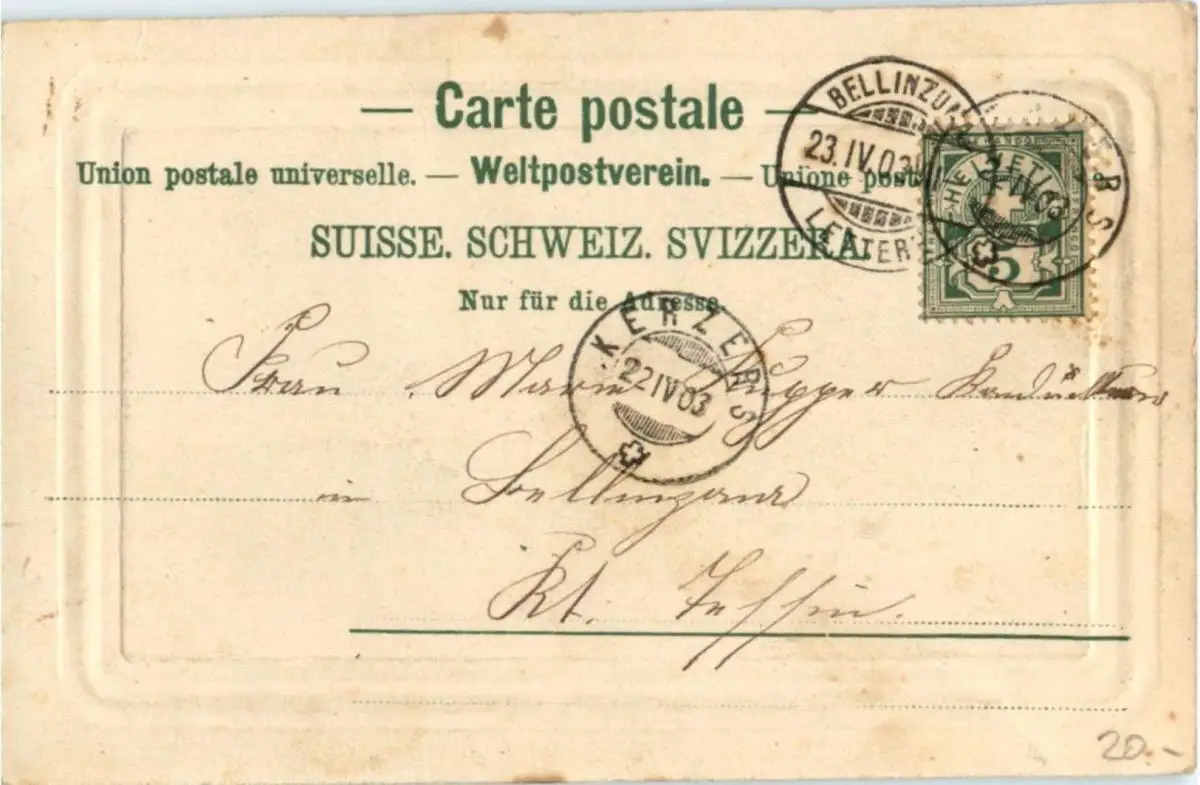 — Carte postale —
Union postale universelle. — Weltpostverein. — Unione post
SUISSE. SCHWEIZ. SVIZZERA.
Nur für die Adresse.
BELLINZONA
23.IV.03
LETTER
HELVETIA
5
IV 03
KERZERS
22 IV 03
Frau Marie Kondukteur
in Bellinzona
Kt. Tessin.
20.-